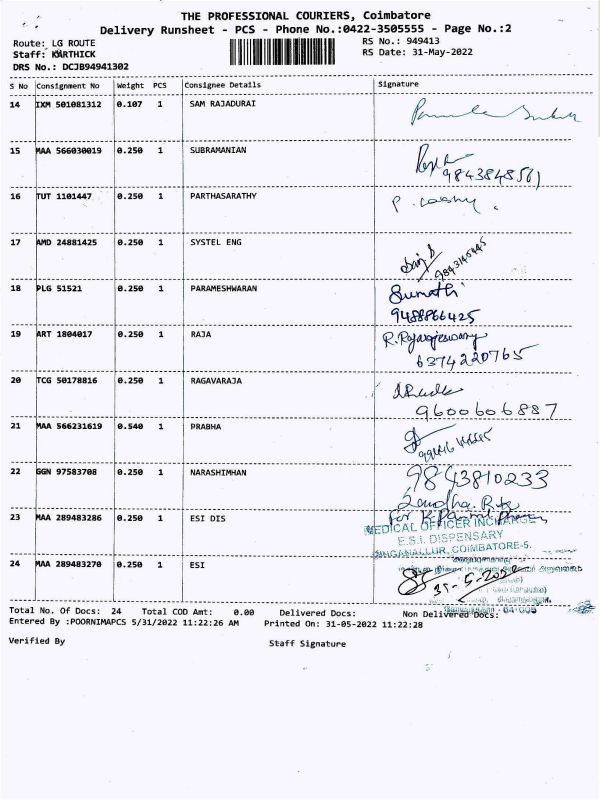 THE PROFESSIONAL COURIERS, Coimbatore
Delivery Runsheet - PCS - Phone No.:0422-3505555 - Page No.:2
Route: LG ROUTE RS No.: 949413
Staff: KARTHICK RS Date: 31-May-2022
DRS No.: DCJB94941302
S No Consignment No Weight PCS Consignee Details Signature
14 IXM 501081312 0.107 1 SAM RAJADURAI
15 MAA 566030019 0.250 1 SUBRAMANIAN
9843848561
16 TUT 1101447 0.250 1 PARTHASARATHY
17 AMD 24881425 0.250 1 SYSTEL ENG
18 PLG 51521 0.250 1 PARAMESHWARAN Sumathi
9488866425
19 ART 1804017 0.250 1 RAJA R. Rajarajeswary
6374220765
20 TCG 50178816 0.250 1 RAGAVARAJA
9600606887
21 MAA 566231619 0.540 1 PRABHA
22 GGN 97583708 0.250 1 NARASHIMHAN 9843810233
23 MAA 289483286 0.250 1 ESI DIS for
MEDICAL OFFICER INCHARGE
E.S.I. DISPENSARY
SINGANALLUR, COIMBATORE-5.
24 MAA 289483270 0.250 1 ESI
31-5-2022
Total No. Of Docs: 24 Total COD Amt: 0.00 Delivered Docs: Non Delivered Docs:
Entered By :POORNIMAPCS 5/31/2022 11:22:26 AM Printed On: 31-05-2022 11:22:28
Verified By Staff Signature